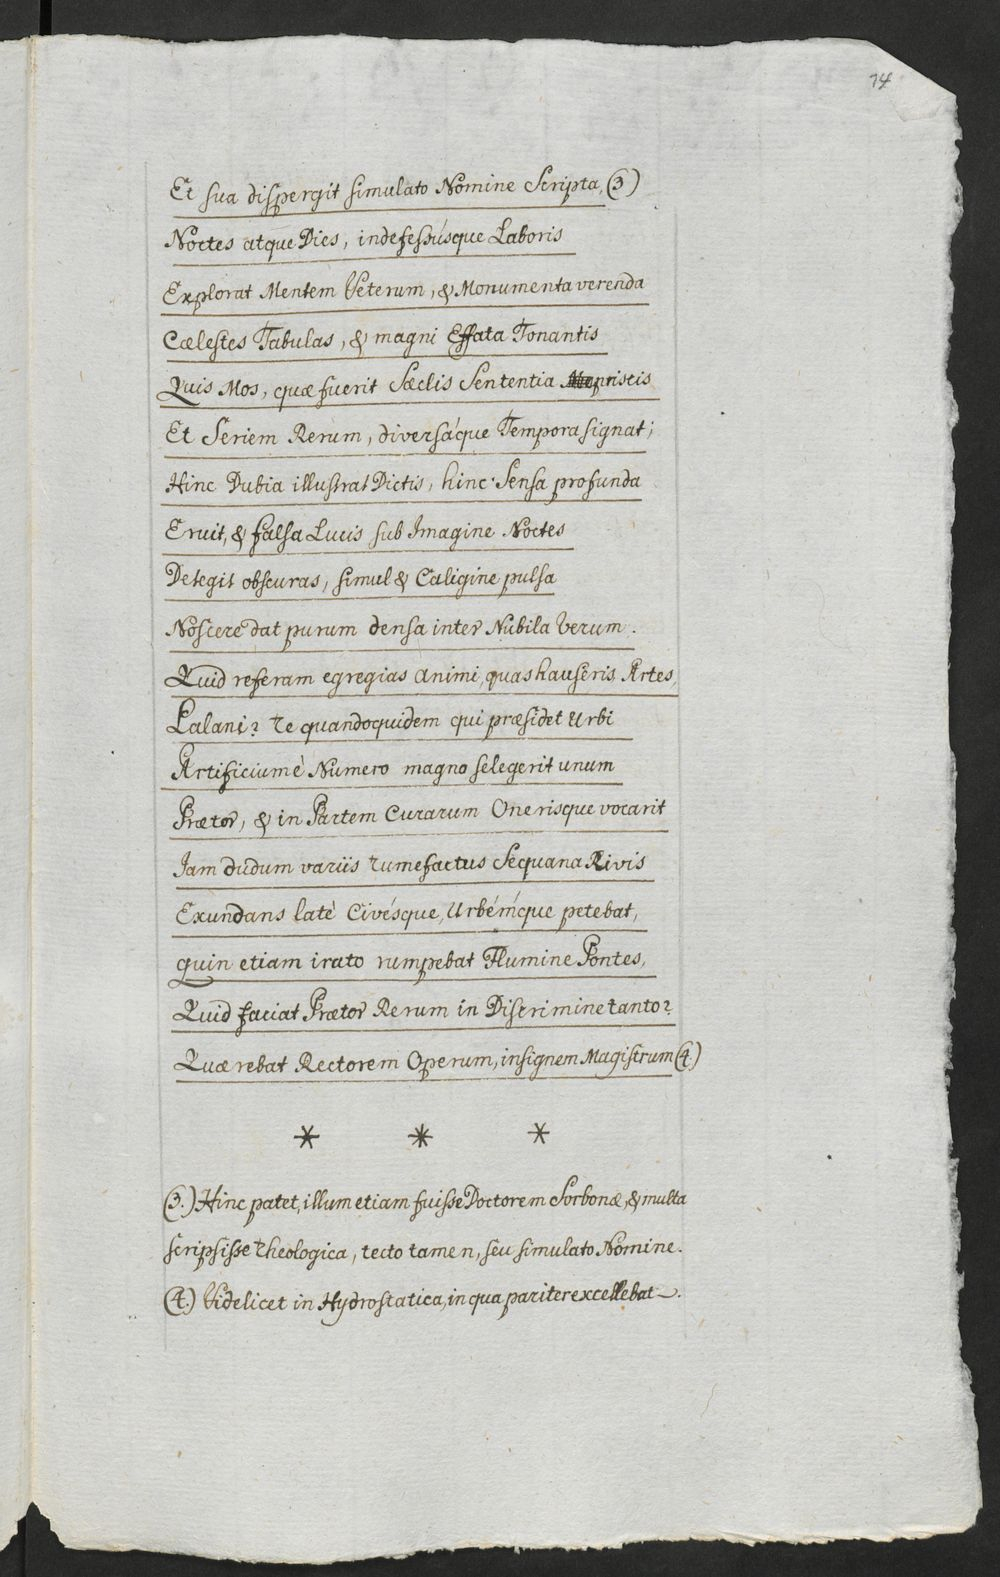 74
Et sua dispergit simulato Nomine Scripta, (3)
Noctes atque Dies, indefessúsque Laboris
Explorat Mentem Veterum, & Monumenta verenda
Cælestes Tabulas, & magni Effata Tonantis
Quis Mos, quæ fuerit Sæclis Sententia priscis
Et Seriem Rerum, diversáque Tempora signat;
Hinc Dubia illustrat Dictis, hinc Sensa profunda
Eruit, & falsa Lucis sub Imagine Noctes
Detegit obscuras, simul & Caligine pulsa
Noscere dat purum densa inter Nubila Verum.
Quid referam egregias animi, quas hauseris Artes,
Lalani? Te quandoquidem qui præsidet Urbi
Artificium é Numero magno selegerit unum
Prætor, & in Partem Curarum Onerisque vocarit
Jam dudum variis tumefactus Sequana Rivis
Exundans laté Civésque, Urbémque petebat,
quin etiam irato rumpebat Flumine Pontes,
Quid faciat Prætor Rerum in Discrimine tanto?
Quærebat Rectorem Operum, insignem Magistrum (4)
* * *
(3.) Hinc patet, illum etiam fuisse Doctorem Sorbonæ, & multa
scripsisse theologica, tecto tamen, seu simulato Nomine.
(4.) Videlicet in Hydrostatica, in qua pariter excellebat.